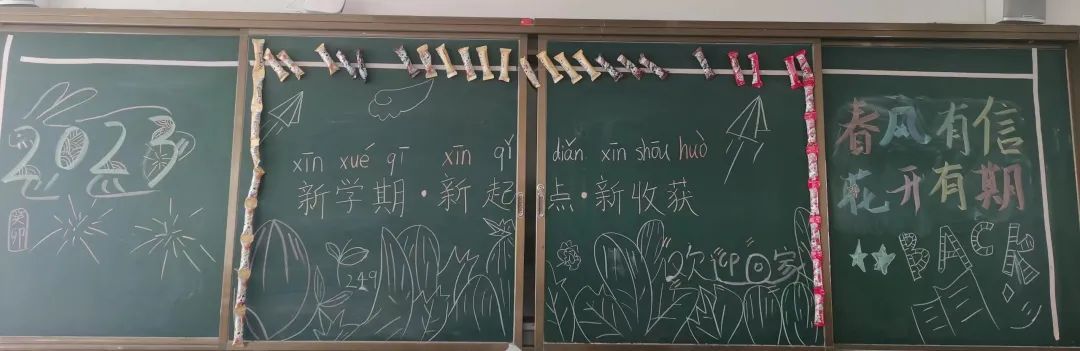 2023
癸卯
xīn xué qī xīn qǐ diǎn xīn shōu huò
新学期·新起点·新收获
249
欢迎回家
春风有信
花开有期
BACK